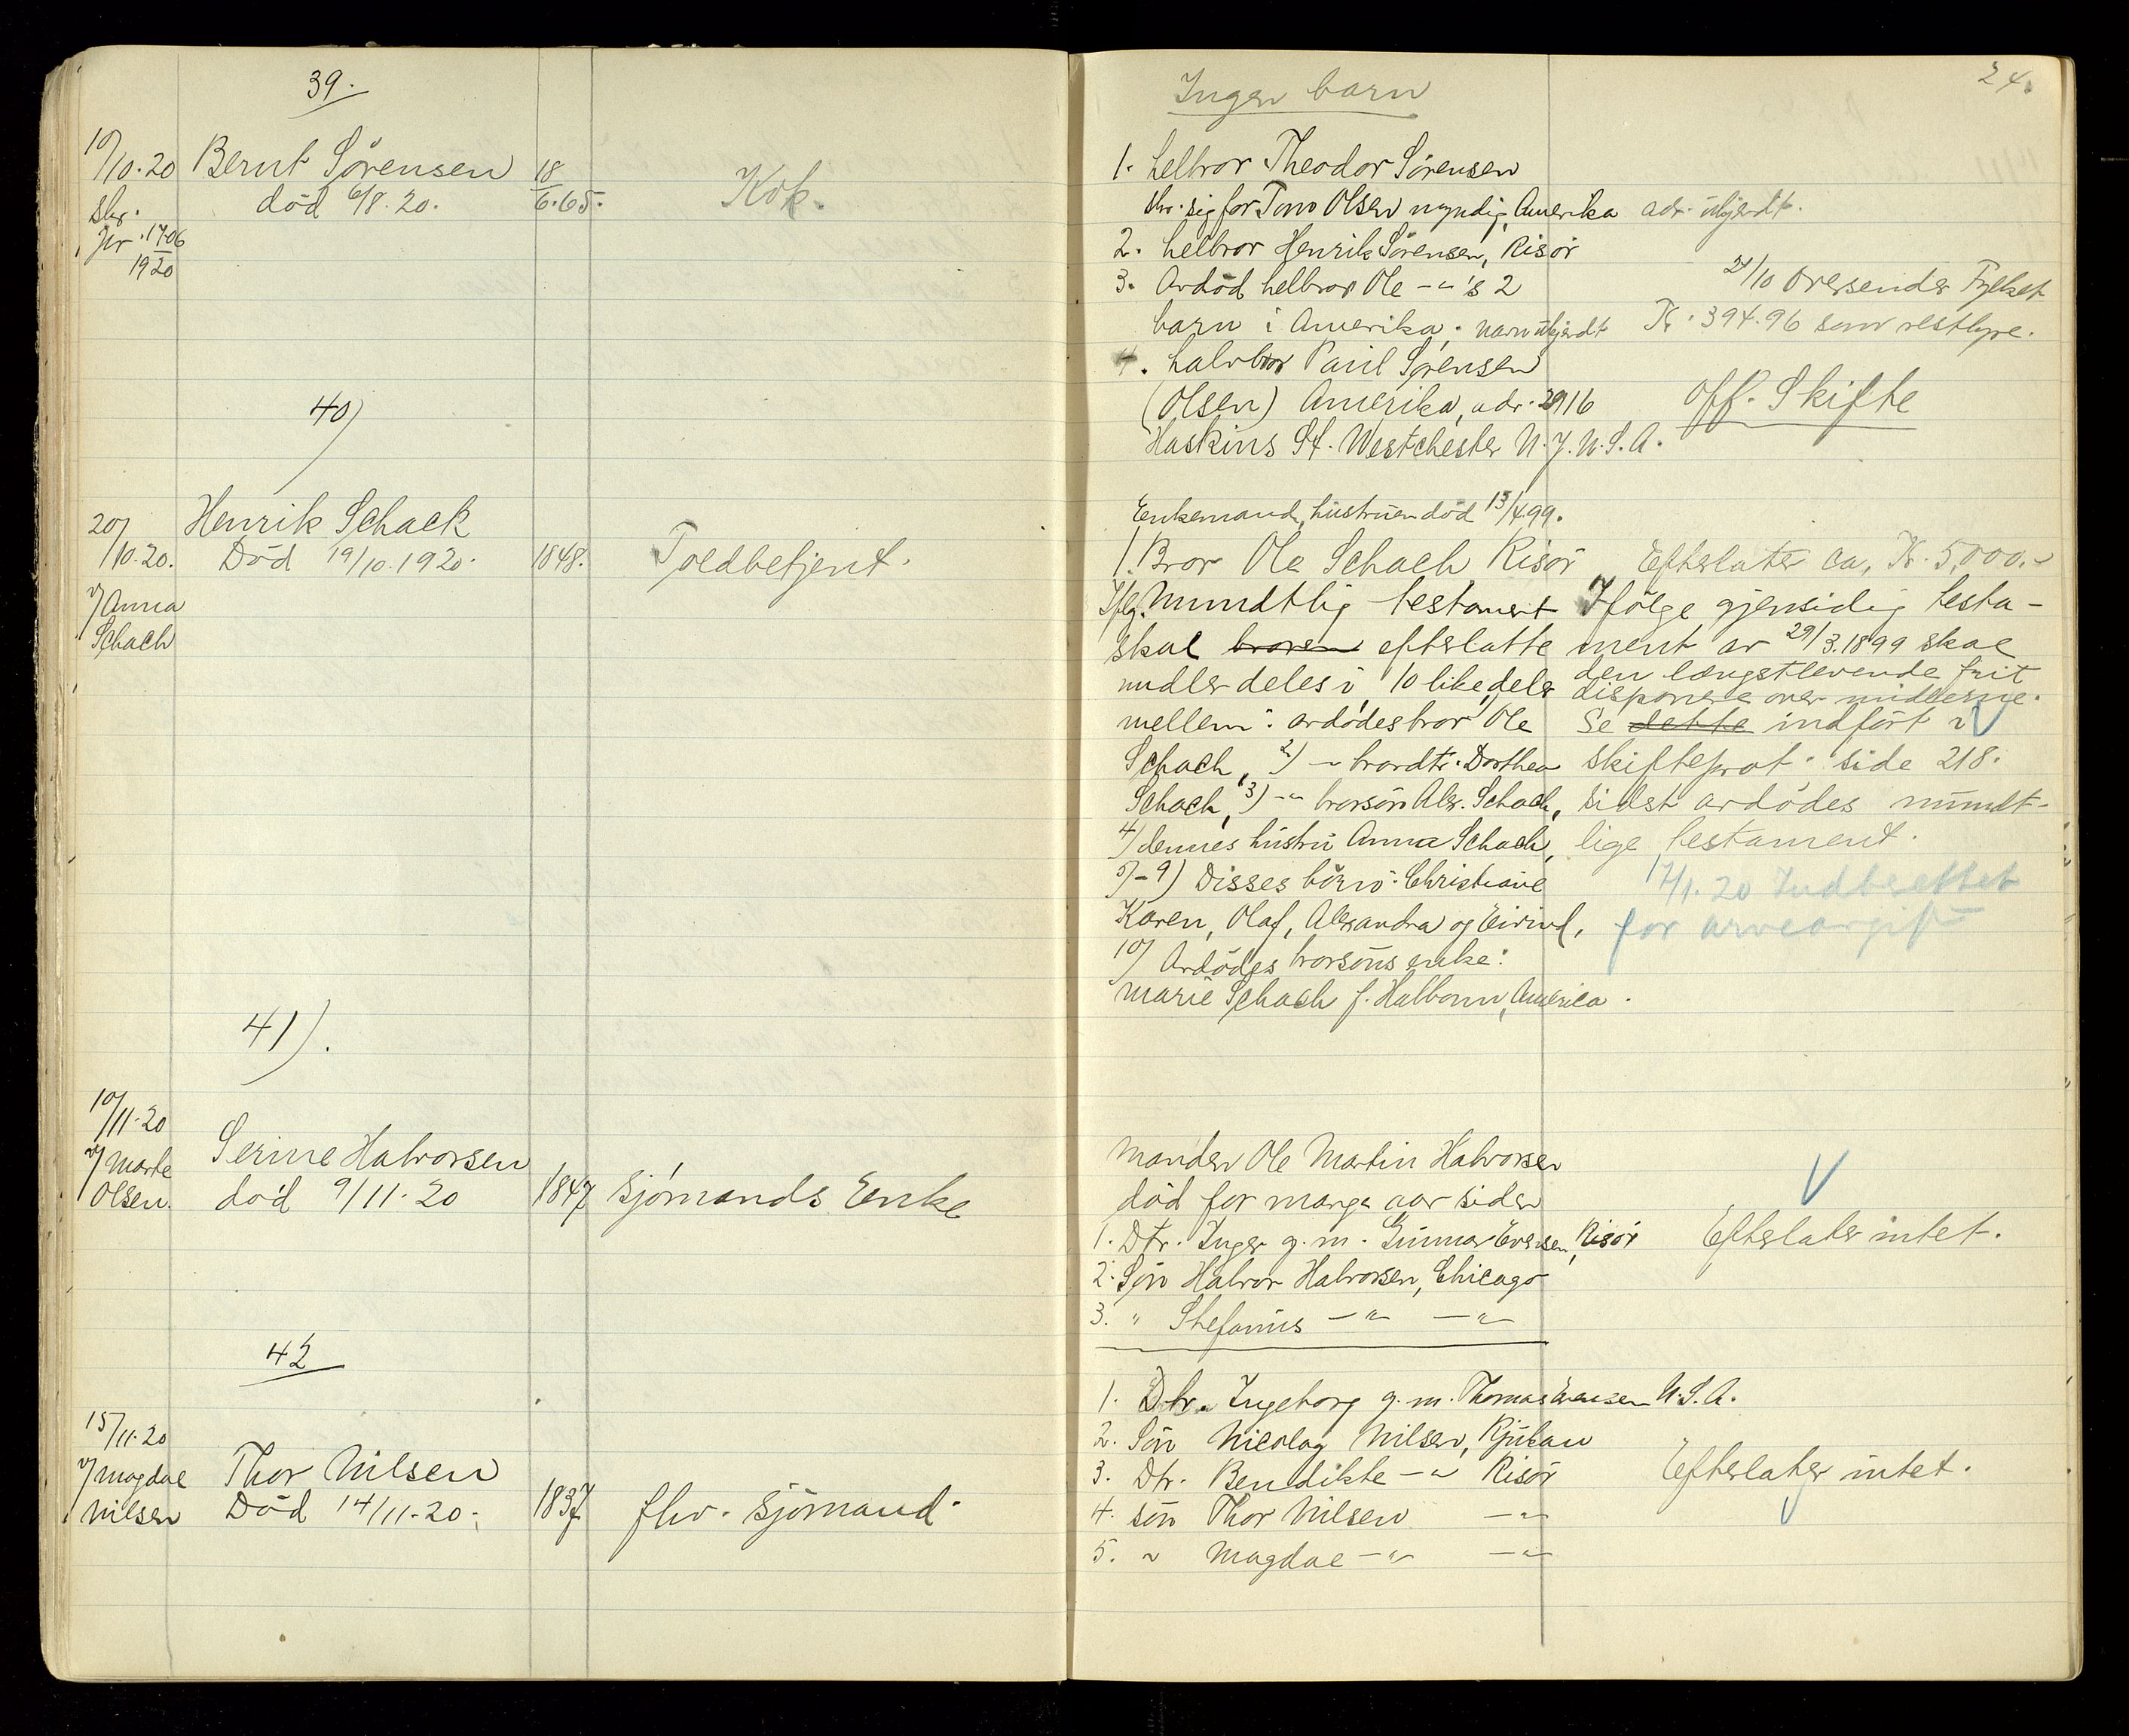 39.
10/10.20 Bernt Sörensen 18/6.65. Kok.
skr. död 6/8.20.
Jnr. 1706
1920
40)
20/10.20. Henrik Schack
Död 19/10.1920. 1848. Toldbetjent.
v/ Anna
Schach
41).
10/11.20
v/ Marte Serine Halvorsen
Olsen. död 9/11.20 1847 Sjömands Enke
42
15/11.20
v/ Magdal Thor Nilsen
Nilsen Död 14/11-20. 1837 fhv. Sjömand.
24.
Ingen barn
1. helbror Theodor Sörensen
skr. sig for Tom Olsen myndig, Amerika adr. ubekjendt.
2. helbror Henrik Sörensen, Risör
3. Avdöd helbror Ole -"-'s 2
barn i Amerika. navn ukjendt
21/10 oversendes Fylket
Kr. 394.96 som resthyre.
4. halvbror Paul Sørensen
(Olsen) Amerika, adr. 2916
Haskins St. Westchester N.J. U.S.A.
Off. Skifte
Enkemand, hustruen död 13/4 99.
1. Bror Ole Schach Risör
Iflg. Mundtlig testament
skal broren efterlatte
midler deles i 10 like deler
mellem: avdödes bror Ole
Schach, 2) -"- brordtr. Dorthea
Schach, 3) -"- brorsön Alex. Schach,
4) dennes hustru Anna Schach,
5)-9) Disses börn: Christiane
Karen, Olaf, Alexandra og Eivind,
10) Avdödes brorsöns enke:
Marie Schach f. Halbom, America.
Efterlater ca. Kr. 5,000.-
Ifölge gjensidig testa-
ment av 29/3.1899 skal
den længstlevende frit
disponere over midlerne.
Se dette indfört i
skifteprot. side 218.
sidst avdödes mundt-
lige testament.
7/1.20 Indberettet
for arveavgift
Manden Ole Martin Halvorsen
död for mange aar siden
1. Dtr. Inger g.m. Gunnar Evensen, Risör Efterlater intet.
2. Sön Halvor Halvorsen, Chicago
3. " Stefanus -"- -"-
1. Dtr. Ingeborg g.m. Thomas Evensen U.S.A.
2. Sön Nicolay Nilsen, Rjukan
3. Dtr. Bendikte -"- Risör Efterlater intet.
4. sön Thor Nilsen -"-
5. " Magdal -"- -"-